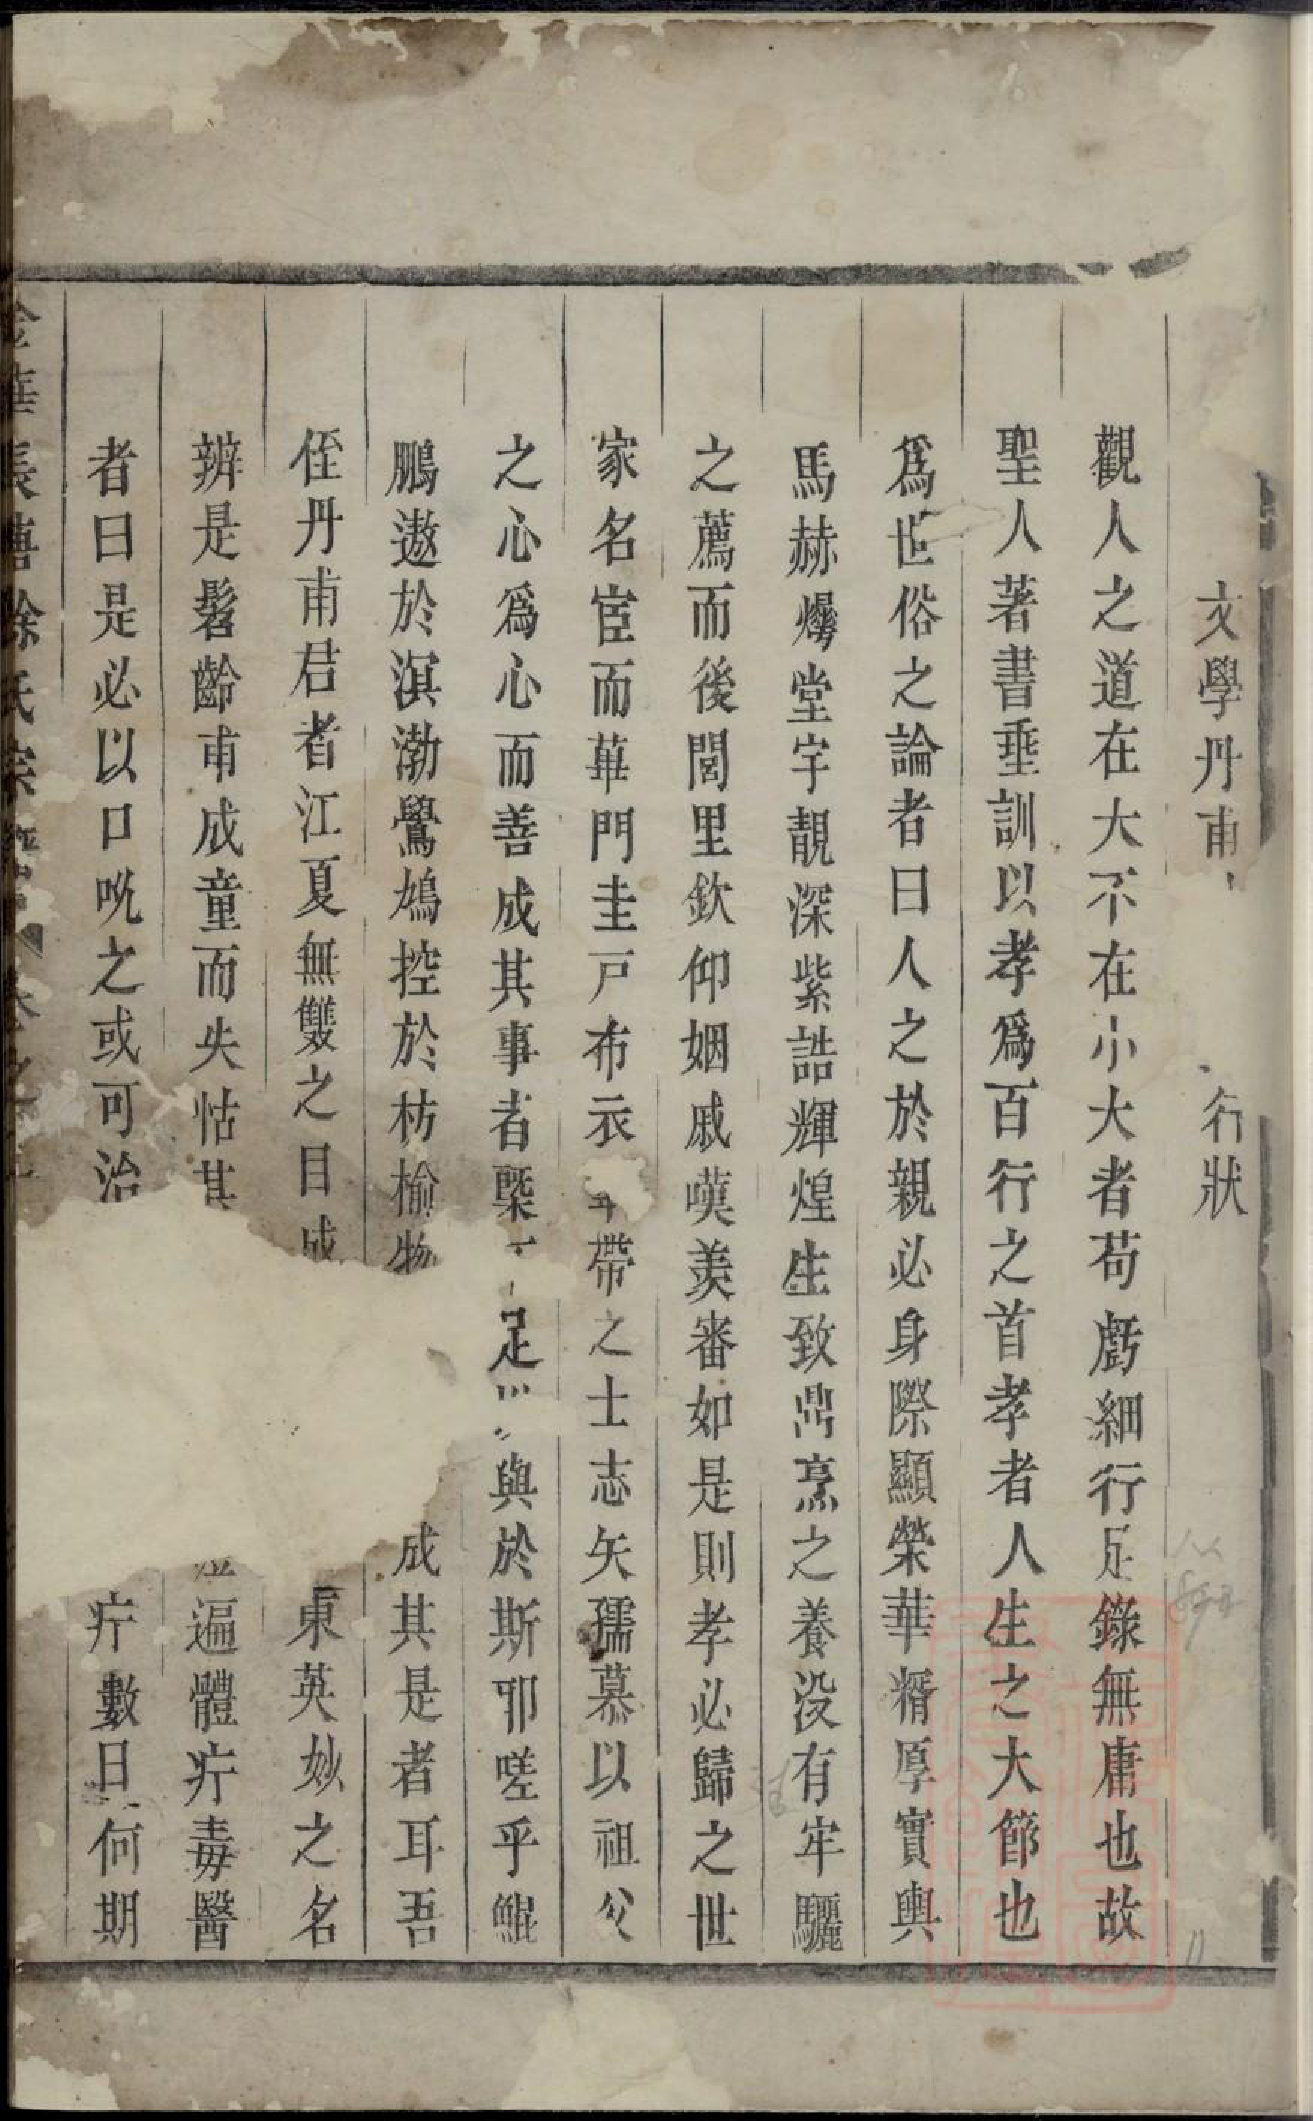 文學丹甫 行狀
觀人之道在大不在小大者苟虧細行足錄無庸也故
聖人著書垂訓以孝爲百行之首孝者人生之大節也
爲世俗之論者曰人之於親必身際顯榮華糈厚實輿
馬赫爗堂宇靚深紫誥輝煌生致鼎烹之養没有牢驪
之薦而後閭里欽仰姻戚嘆羡審如是則孝必歸之世
家名宦而蓽門圭戸布衣韋帶之士志矢孺慕以祖父
之心爲心而善成其事者槩 足 與於斯耶嗟乎鯤
鵬遨於溟渤鷽鳩控於枋榆物 成其是者耳吾
侄丹甫君者江夏無雙之目成 東英妙之名
辨是髫齡甫成童而失怙其 遍體疔毒醫
者曰是必以口吮之或可治 疔數日何期
金華長塘徐氏宗譜 卷之